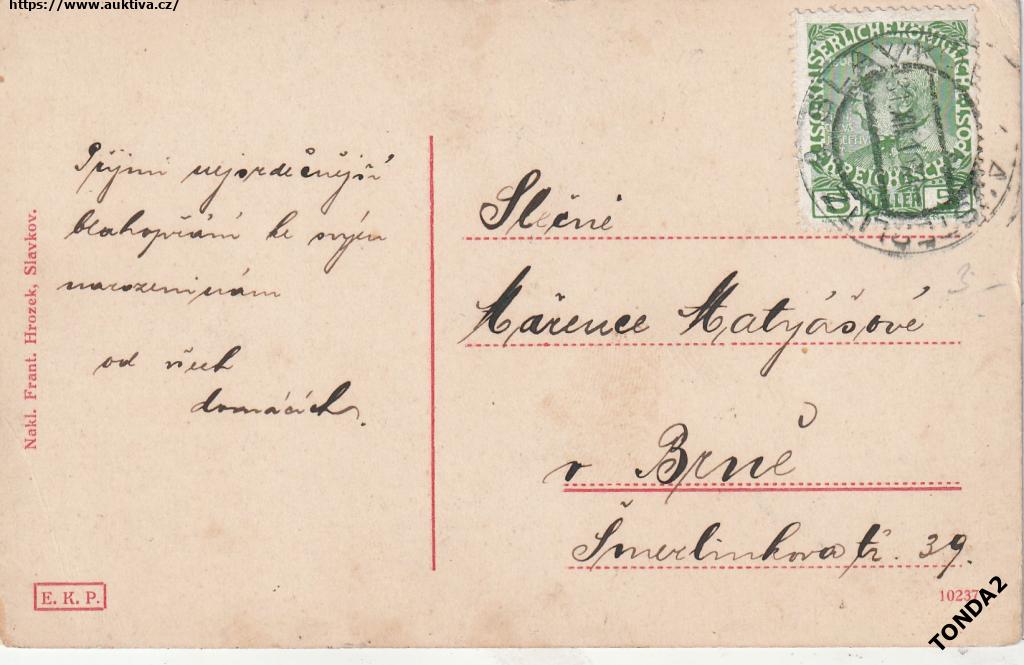 https://www.auktiva.cz/
KAISERLICHE KÖNIGLICHE
POST
ÖSTERREICHISCHE
HELLER
5
3-
Přijmi nejsrdečnější
blahopřání ke svým
narozeninám
od všech
domácích.
Slečně
Mařence Matyášové
v Brně
Šmerlinkova tř. 39.
Nakl. Frant. Hrozek, Slavkov.
E. K. P.
10237
TONDA2